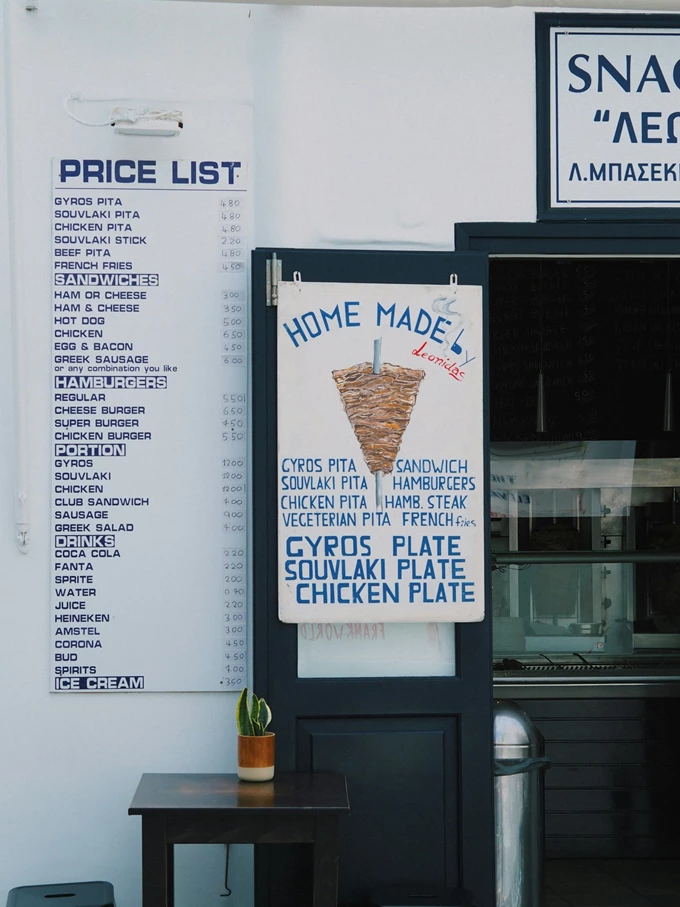 PRICE LIST
GYROS PITA 4.80
SOUVLAKI PITA 4.80
CHICKEN PITA 4.80
SOUVLAKI STICK 2.20
BEEF PITA 4.80
FRENCH FRIES 4.50
SANDWICHES
HAM OR CHEESE 3.00
HAM & CHEESE 3.50
HOT DOG 5.00
CHICKEN 6.50
EGG & BACON 4.50
GREEK SAUSAGE 6.00
or any combination you like
HAMBURGERS
REGULAR 5.50
CHEESE BURGER 6.50
SUPER BURGER
CHICKEN BURGER 5.50
PORTION
GYROS 12.00
SOUVLAKI 12.00
CHICKEN 12.00
CLUB SANDWICH
SAUSAGE 9.00
GREEK SALAD
DRINKS
COCA COLA 2.20
FANTA 2.20
SPRITE
WATER
JUICE 2.20
HEINEKEN 3.00
AMSTEL 3.00
CORONA 4.50
BUD 4.50
SPIRITS
ICE CREAM 3.50
HOME MADE by
Leonidas
GYROS PITA SANDWICH
SOUVLAKI PITA HAMBURGERS
CHICKEN PITA HAMB. STEAK
VEGETERIAN PITA FRENCH fries
GYROS PLATE
SOUVLAKI PLATE
CHICKEN PLATE
FRANKWORLD
SNAC
“ΛΕΩ
Λ.ΜΠΑΣΕΚ